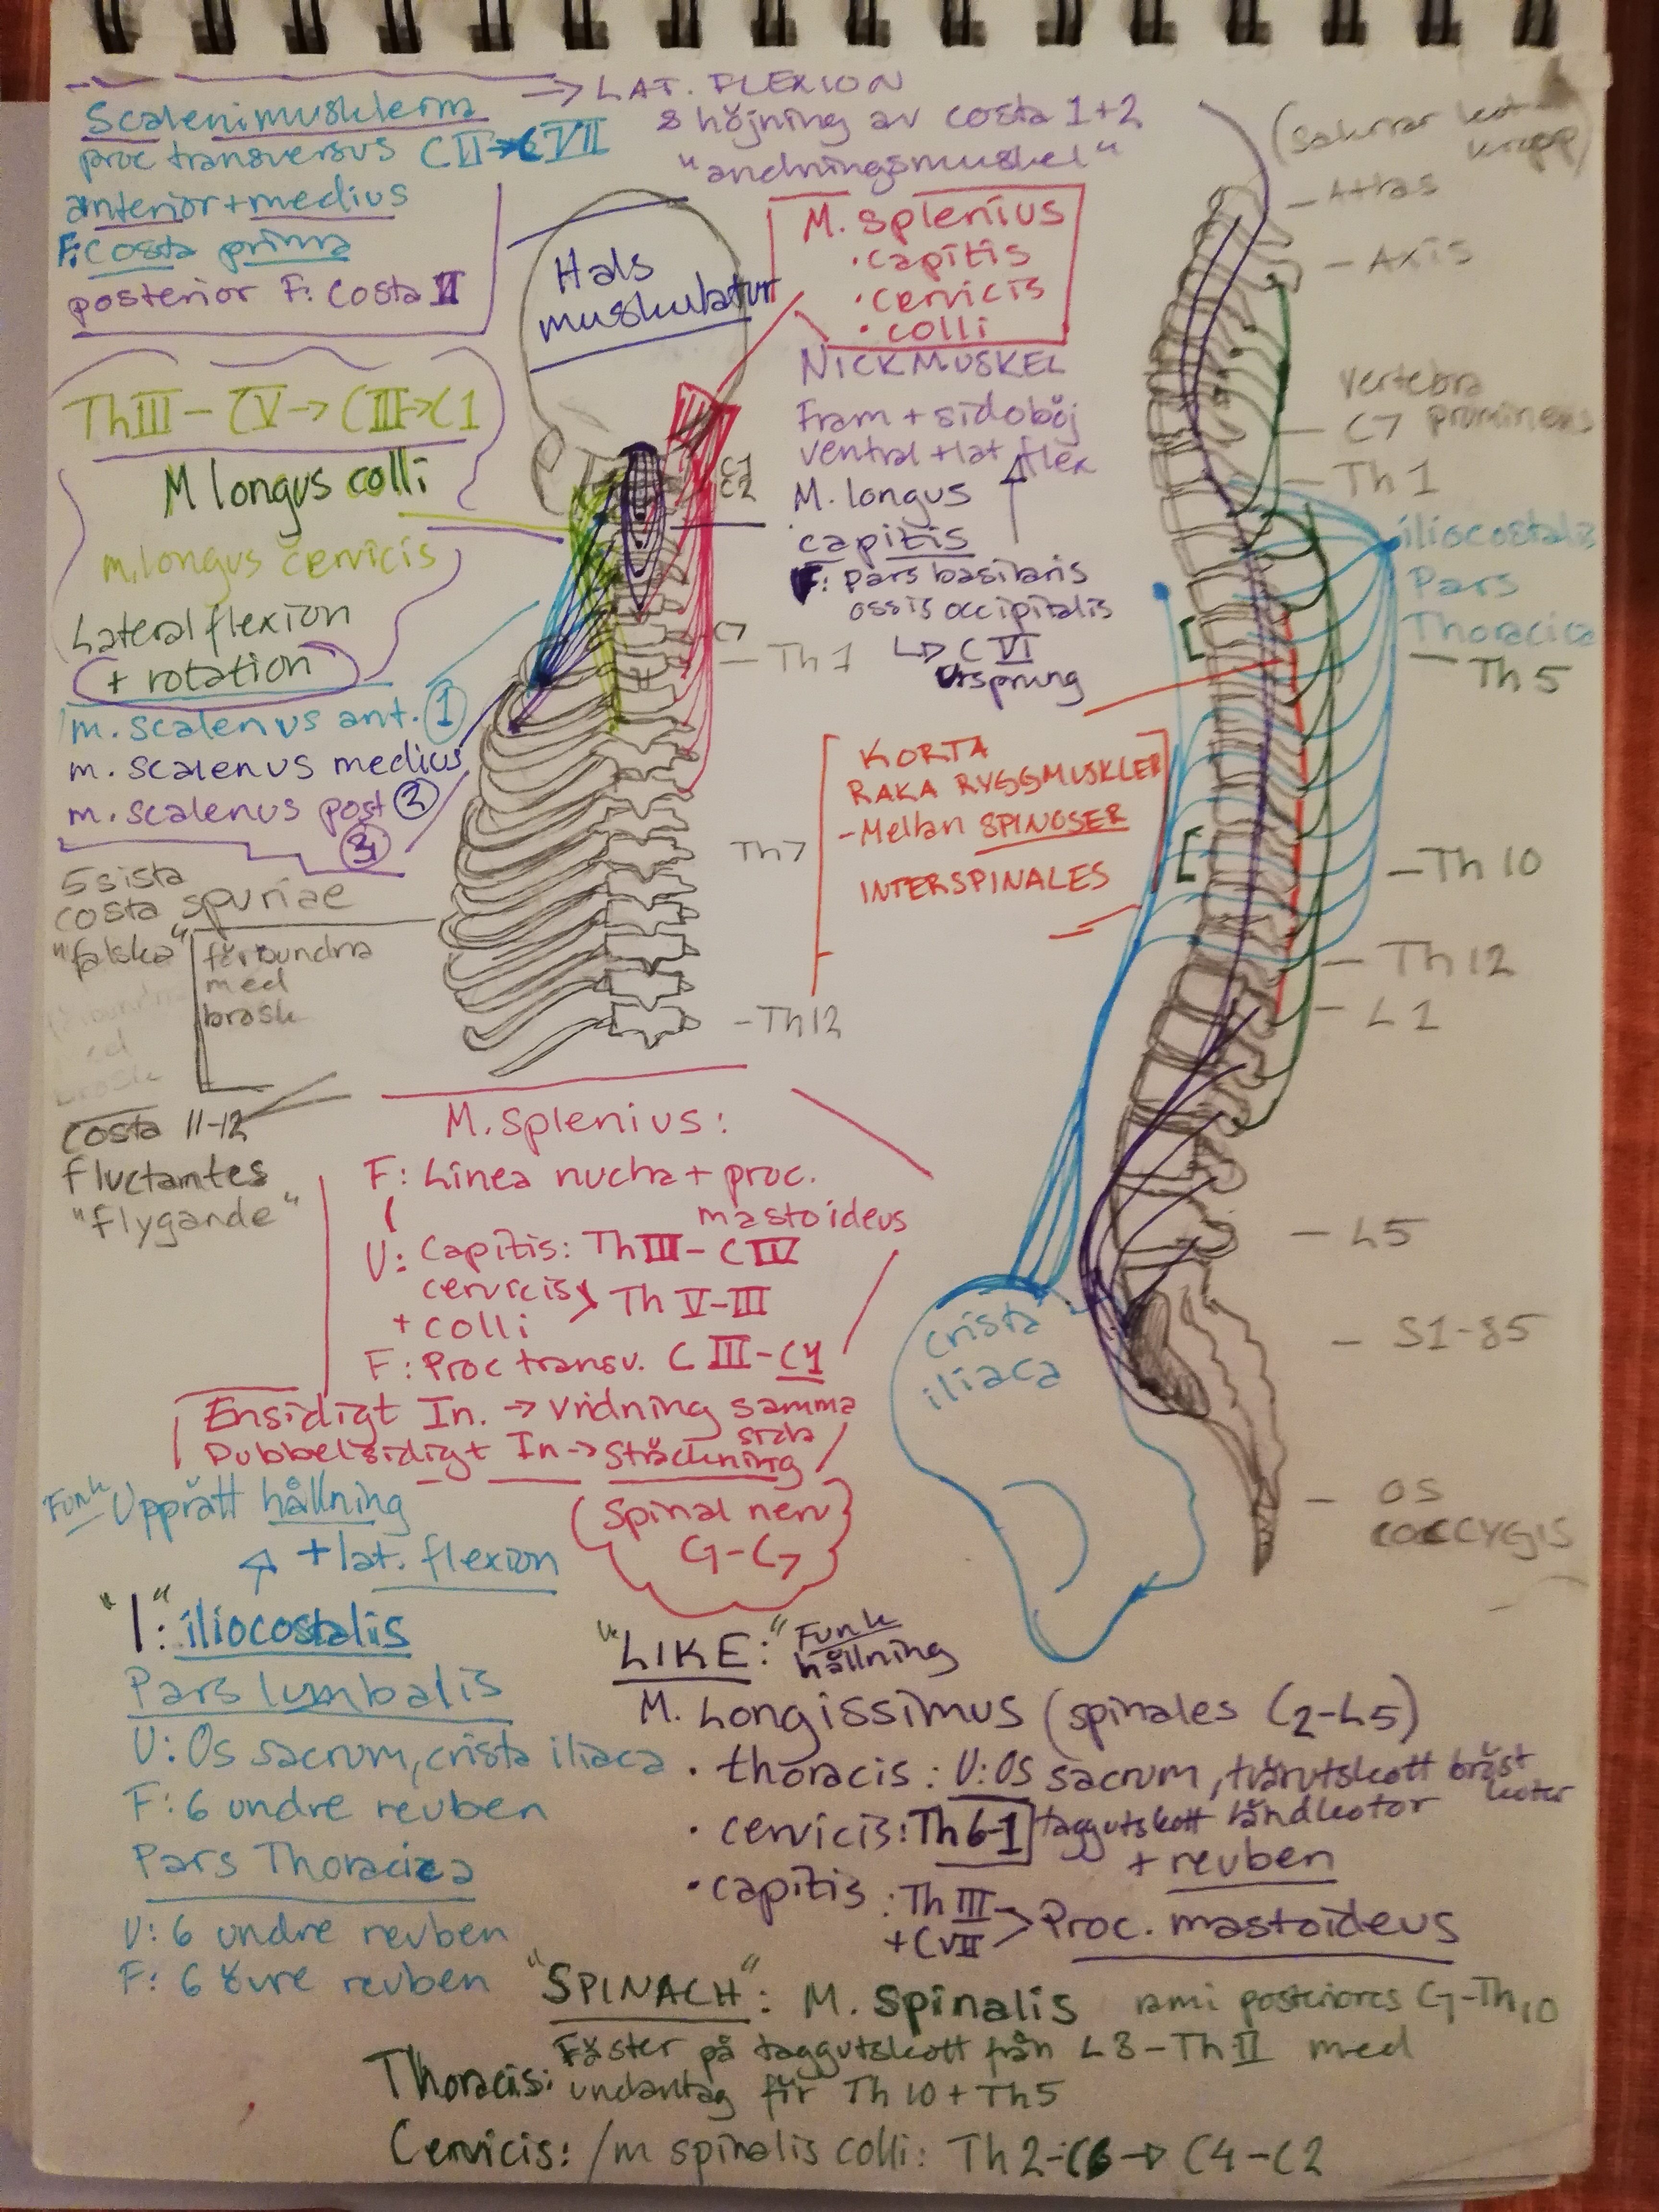 ⇒ LAT. FLEXION
& höjning av costa 1+2
"andningsmuskel"
Scalenimusklerna
proc transversus CII→CVII
anterior + medius
F: Costa prima
posterior F: Costa II
Hals
muskulatur
M. splenius
• capitis
• cervicis
• colli
NICKMUSKEL
Fram + sidoböj
ventral + lat flex
M. longus
capitis
F: pars basilaris
ossis occipitalis
↳ C VI
Ursprung
ThIII – CV → CIII → C1
M longus colli
m. longus cervicis
Lateralflexion
+ rotation
m. scalenus ant. 1
m. scalenus medius
2
m. scalenus post
3
5 sista
costa spuriae
"falska"
förbundna
med
brosk
Costa 11-12
fluctantes
"flygande"
C1
C2
C7
– Th 1
Th7
– Th12
KORTA
RAKA RYGGMUSKLER
– Mellan SPINOSER
INTERSPINALES
(saknar kot-
kropp)
– Atlas
– Axis
Vertebra
– C7 prominens
– Th 1
iliocostalis
Pars
Thoracica
– Th 5
– Th 10
– Th 12
– L 1
– L5
– S1-S5
– OS
COCCYGIS
crista
iliaca
M. splenius:
F: Linea nucha + proc.
mastoideus
U: Capitis: ThIII – CIV
cervicis
+ colli > Th V–III
F: Proc transv. C III – C1
Ensidigt In. → vridning samma
sida
Dubbelsidigt In → sträckning
(Spinal nerv
C1–C7
Funk Upprätt hållning
+ lat. flexion
"I": iliocostalis
Pars lumbalis
U: Os sacrum, crista iliaca
F: 6 undre revben
Pars Thoracica
U: 6 undre revben
F: 6 övre revben
"LIKE:" Funk
hållning
M. Longissimus (spinales C2–L5)
• thoracis: U: Os sacrum, tvärutskott bröst
kotor
• cervicis: Th 6-1 taggutskott ländkotor
+ revben
• capitis: Th III
+ CVII > Proc. mastoideus
"SPINACH": M. Spinalis rami posteriores C1–Th10
Fäster på taggutskott från L3 – Th II med
Thoracis: undantag för Th 10 + Th5
Cervicis: /m spinalis colli: Th 2-C6 → C4 – C2